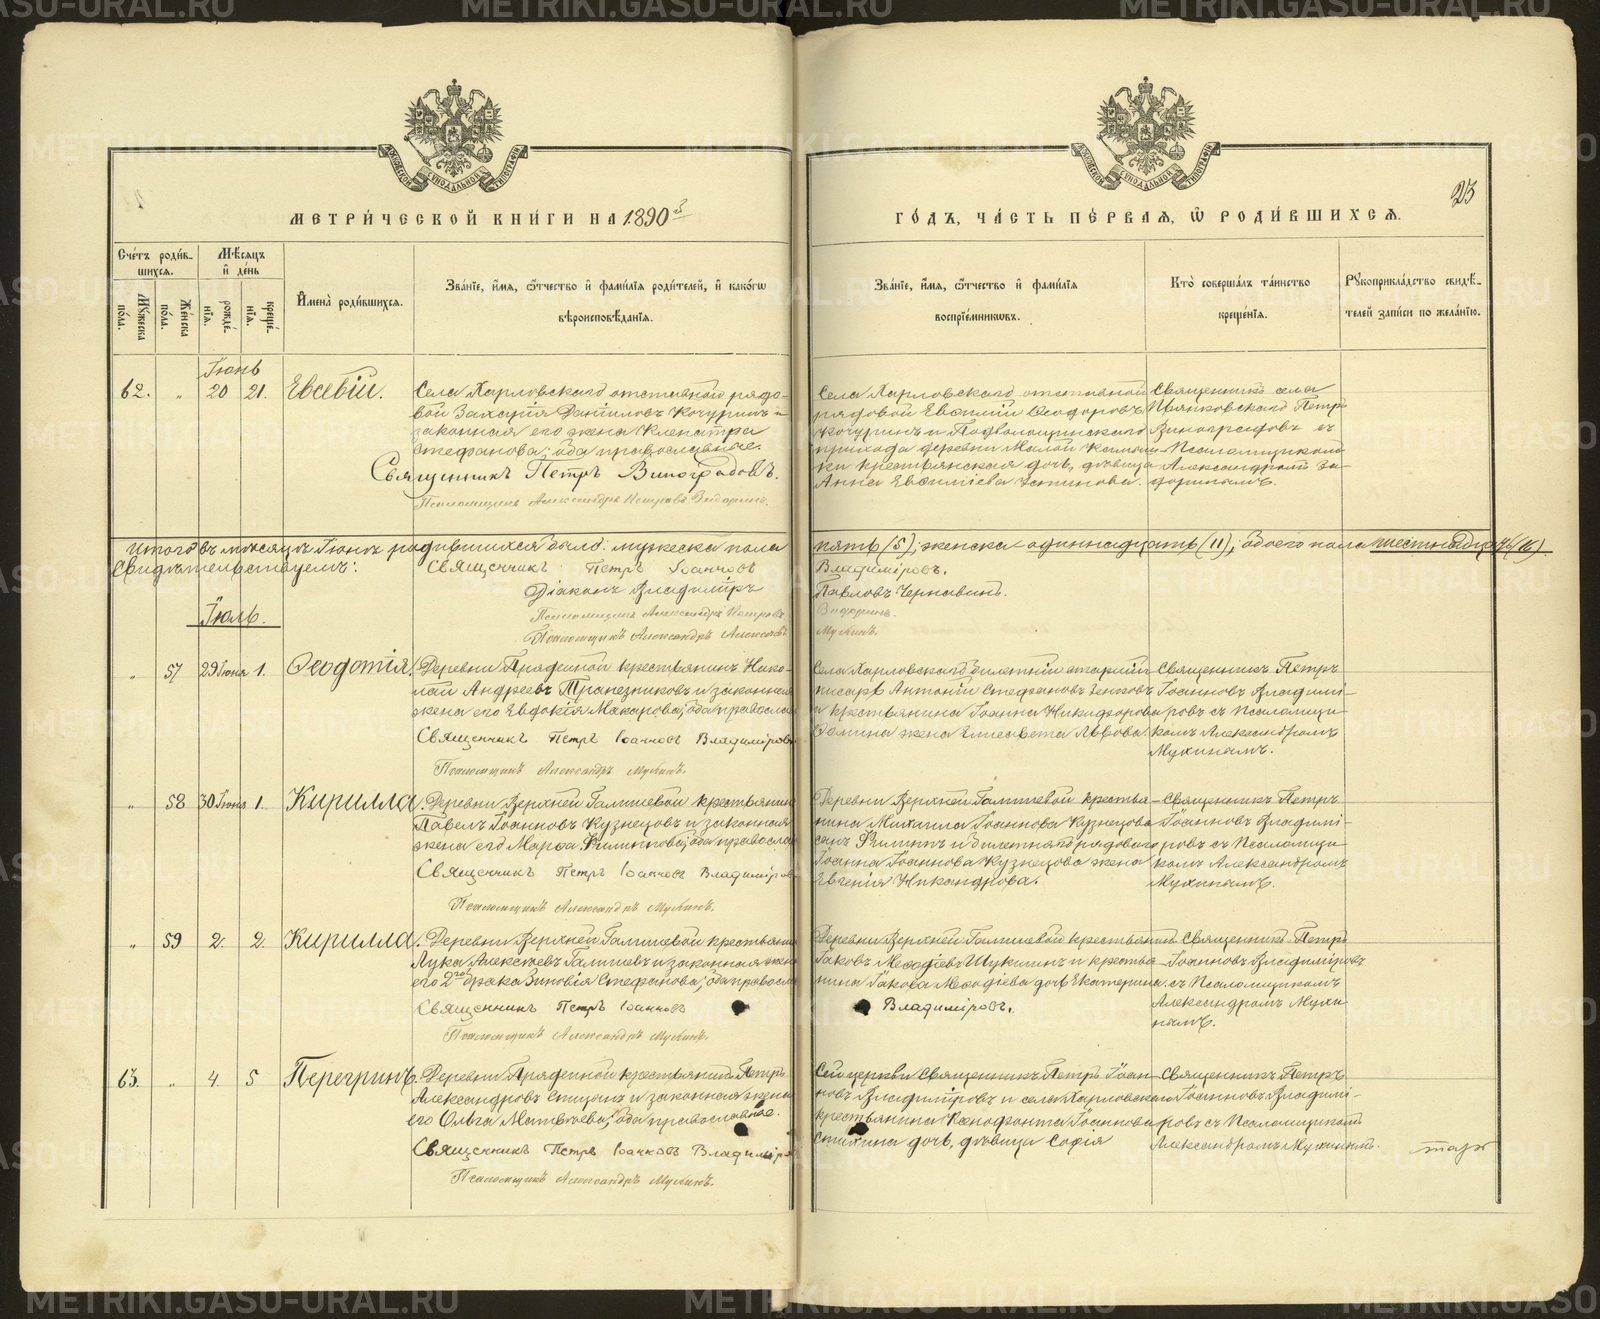 METRIKI.GASO-URAL.RU
МЕТРИ́ЧЕСКОЙ КНИ́ГИ НА 1890й
ГО́ДЪ, ЧА́СТЬ ПЕ́РВАЯ, Ѽ РОДИ́ВШИХСЯ.
23
Сче́тъ роди́в-
шихся.
Мѣ́сяцъ
и҆ де́нь
Мꙋ́жеска
по́ла.
Же́нска
по́ла.
рожде́-
нїѧ.
креще́-
нїѧ.
И҆мена̀ роди́вшихся.
Зва́нїе, и҆́мѧ, ѻ҆́тчество и҆ фами́лїѧ роди́телей, и҆ како́гѡ
вѣроисповѣ́данїѧ.
Зва́нїе, и҆́мѧ, ѻ҆́тчество и҆ фами́лїѧ
воспрїе́мниковъ.
Кто̀ соверша́лъ та́инство
креще́нїѧ.
Рꙋкоприкла́дство свидѣ́-
телей за́писи по жела́нїю.
Іюнь
62. „ 20 21. Евсевій.
Села Харловскаго отставной рядо-
вой Захарія Даніиловъ Кочуринъ и
законная его жена Клеопатра
Стефанова; оба православные.
Священникъ Петръ Виноградовъ.
Псаломщикъ Александръ Петровъ Зидоринъ.
Села Харловскаго отставной
рядовой Евѳимій Ѳеодоровъ
Кочуринъ и
прихода деревни Малой
ки крестьянская дочь, дѣвица
Анна Евѳиміева Устинова.
Священникъ села
Петръ
Виноградовъ съ
Псаломщикомъ
Александромъ Зи-
доринымъ.
Итого въ мѣсяцѣ Іюнѣ родившихся было: мужеска пола
пять (5); женска одиннадцать (11); обоего пола шестнадцать (16)
Свидѣтельствуемъ:
Священникъ Петръ Іоанновъ
Владиміровъ.
Діаконъ Владиміръ
Павловъ Чернавинъ.
Псаломщикъ Александръ Петровъ
Зидоринъ.
Псаломщикъ Александръ Алексѣевъ
Мухинъ.
Іюль.
„ 57 29 Іюня 1. Ѳеодотія.
Деревни Прядеиной крестьянинъ Нико-
лай Андреевъ Трапезниковъ и законная
жена его Евдокія Макарова; оба правосла
Священникъ Петръ Іоанновъ Владиміровъ
Псаломщикъ Александръ Мухинъ.
Села Харловскаго билетный старшій
писарь Антоній Стефановъ
и крестьянина Іоанна Никифорова
Ѳомина жена Елисавета Львова.
Священникъ Петръ
Іоанновъ Владимі-
ровъ съ Псаломщи-
комъ Александромъ
Мухинымъ.
„ 58 30 Іюня 1. Кирилла.
Деревни Верхней Галишевой крестьянинъ
Павелъ Іоанновъ Кузнецовъ и законная
жена его Марѳа Филиппова; оба правосла
Священникъ Петръ Іоанновъ Владиміров
Псаломщикъ Александръ Мухинъ.
Деревни Верхней Галишевой крестья-
нина Михаила Іоаннова Кузнецова
сынъ Филиппъ и билетнаго рядового
Іоанна Іоаннова Кузнецова жена
Евгенія Никандрова.
Священникъ Петръ
Іоанновъ Владимі-
ровъ съ Псаломщи-
комъ Александромъ
Мухинымъ.
„ 59 2. 2. Кирилла.
Деревни Верхней Галишевой крестьянинъ
Лука Алексѣевъ Галишевъ и законная жена
его 2го брака Зиновія Стефанова; оба правосл
Священникъ Петръ Іоанновъ
Владиміровъ.
Псаломщикъ Александръ Мухинъ.
Деревни Верхней Галишевой крестьянинъ
Іаковъ Меѳодіевъ Шукшинъ и крестья-
нина Іакова Меѳодіева дочь Екатерина.
Священникъ Петръ
Іоанновъ Владиміровъ
съ Псаломщикомъ
Александромъ Мухи-
нымъ.
63. „ 4. 5 Перегринъ.
Деревни Прядеиной крестьянинъ Петръ
Александровъ Спицынъ и законная жена
его Ольга Матвѣева; оба православные.
Священникъ Петръ Іоанновъ Владиміров
Псаломщикъ Александръ Мухинъ.
Сей церкви Священникъ Петръ Іоан-
новъ Владиміровъ и села Харловскаго
крестьянина Ксенофонта Іоаннова
Стихина дочь, дѣвица Софія
Священникъ Петръ
Іоанновъ Владимі-
ровъ съ Псаломщикомъ
Александромъ Мухинымъ.